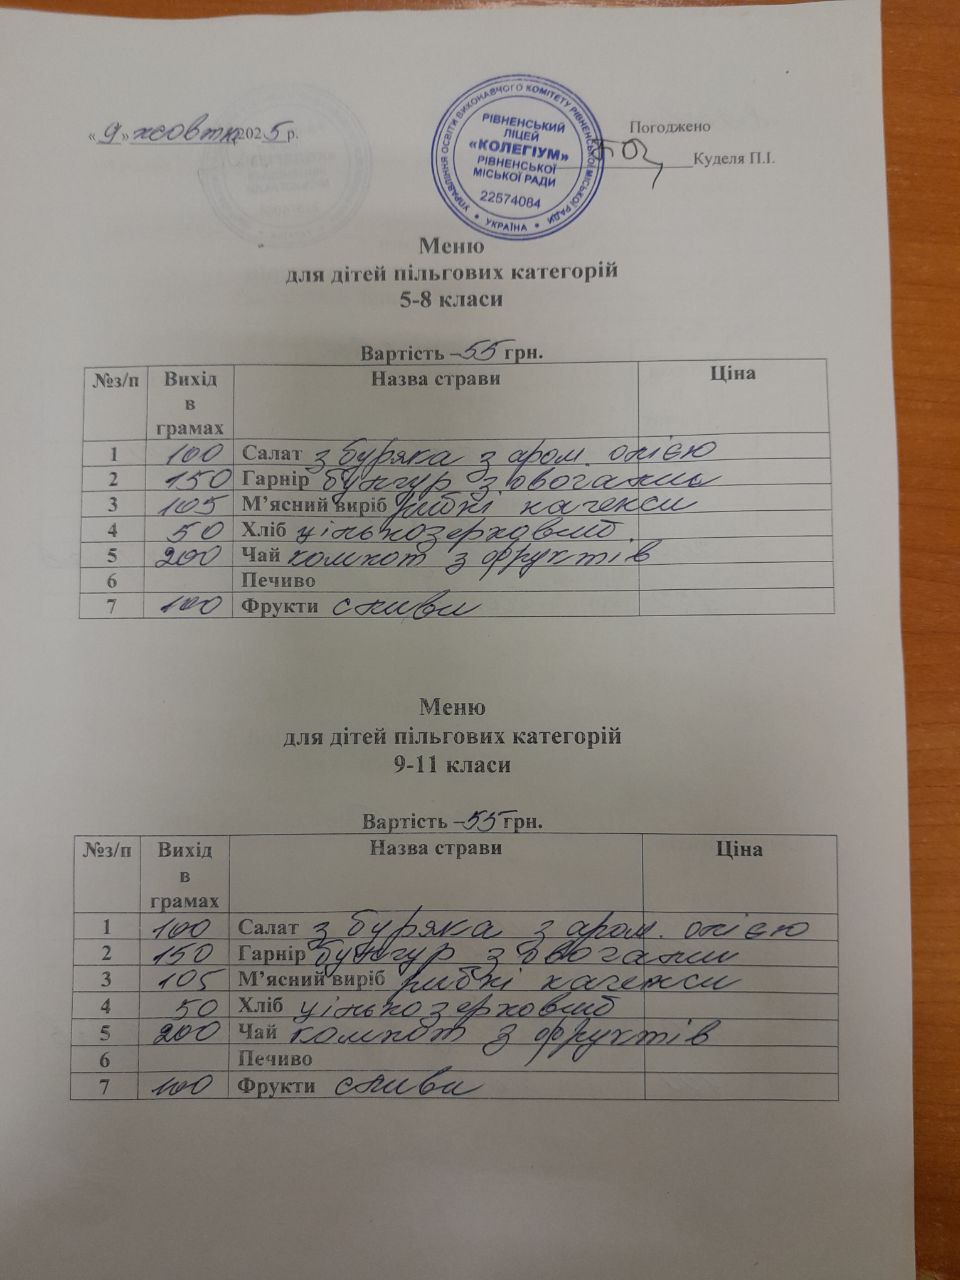 «9» жовтня 2025 р.
Погоджено
Куделя П.І.
УПРАВЛІННЯ ОСВІТИ ВИКОНАВЧОГО КОМІТЕТУ РІВНЕНСЬКОЇ МІСЬКОЇ РАДИ
РІВНЕНСЬКИЙ
ЛІЦЕЙ
«КОЛЕГІУМ»
РІВНЕНСЬКОЇ
МІСЬКОЇ РАДИ
22574084
* УКРАЇНА *
Меню
для дітей пільгових категорій
5-8 класи
Вартість – 55 грн.
№з/п Вихід в грамах Назва страви Ціна
1 100 Салат з буряка з аром. олією
2 150 Гарнір булгур з овочами
3 105 М’ясний виріб рибні нагенси
4 50 Хліб цільнозерновий
5 200 Чай компот з фруктів
6 Печиво
7 100 Фрукти сливи
Меню
для дітей пільгових категорій
9-11 класи
Вартість – 55 грн.
№з/п Вихід в грамах Назва страви Ціна
1 100 Салат з буряка з аром. олією
2 150 Гарнір булгур з овочами
3 105 М’ясний виріб рибні нагенси
4 50 Хліб цільнозерновий
5 200 Чай компот з фруктів
6 Печиво
7 100 Фрукти сливи